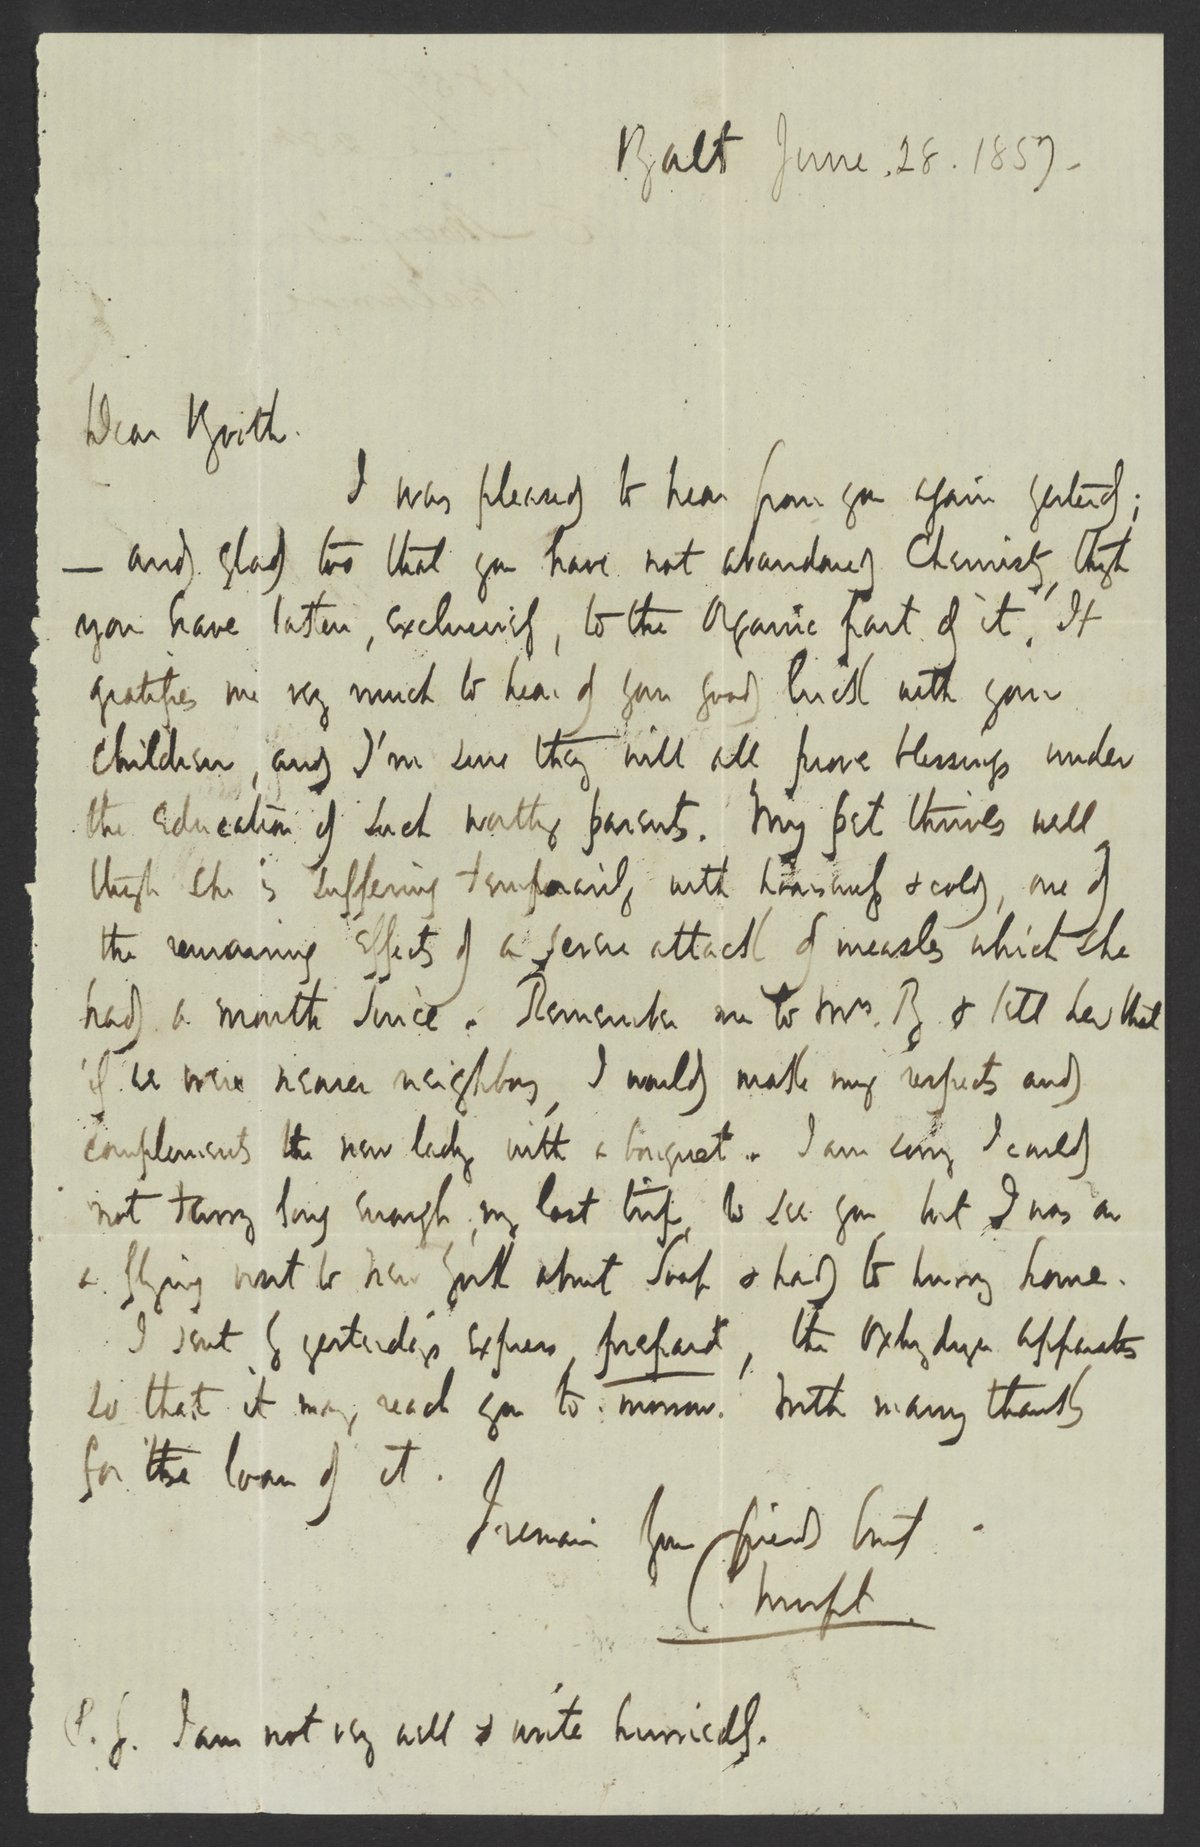 Balt June. 28. 1857.
Dear Booth.
I was pleased to hear from you again yesterd;
— and glad too that you have not abandoned Chemisty, thogh
you have taken, exclusively, to the Organic part of it. It
gratifies me very much to hear of your good luck with your
children, and I'm sure they will all prove blessings under
the education of such worthy parents. My pet thrives well
though she is suffering temporarily with hoarseness & cold, one of
the remaining effects of a severe attack of measles which she
had a month since. Remember me to Mrs. B & tell her that
if we were nearer neighbors, I would make my respects and
complements the new lady with a bouquet. I am sorry I could
not tarry long enough, my last trip, to see you but I was on
a flying visit to New York about Soap & had to hurry home.
I sent by yesterday's express, prepaid, the Oxyhydrogen apparatus
so that it may reach you to-morrow. With many thanks
for the loan of it.
I remain your friend
C. Morfit.
P.S. I am not very well & write hurriedly.